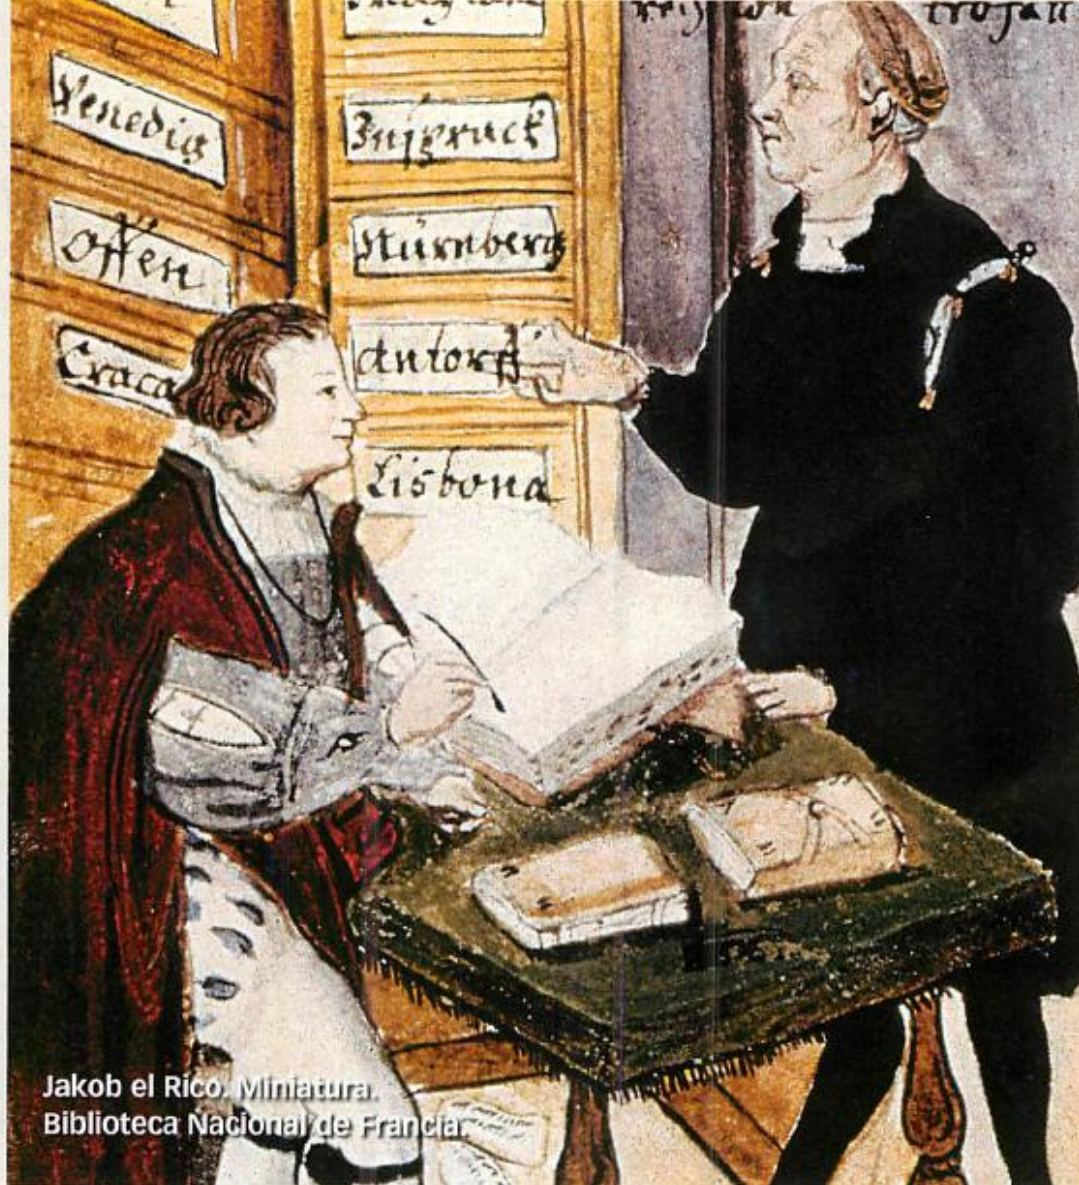 Venedig
Offen
Craca
Inspruck
Nürnberg
Antorff
Lisbona
Jakob el Rico. Miniatura.
Biblioteca Nacional de Francia.